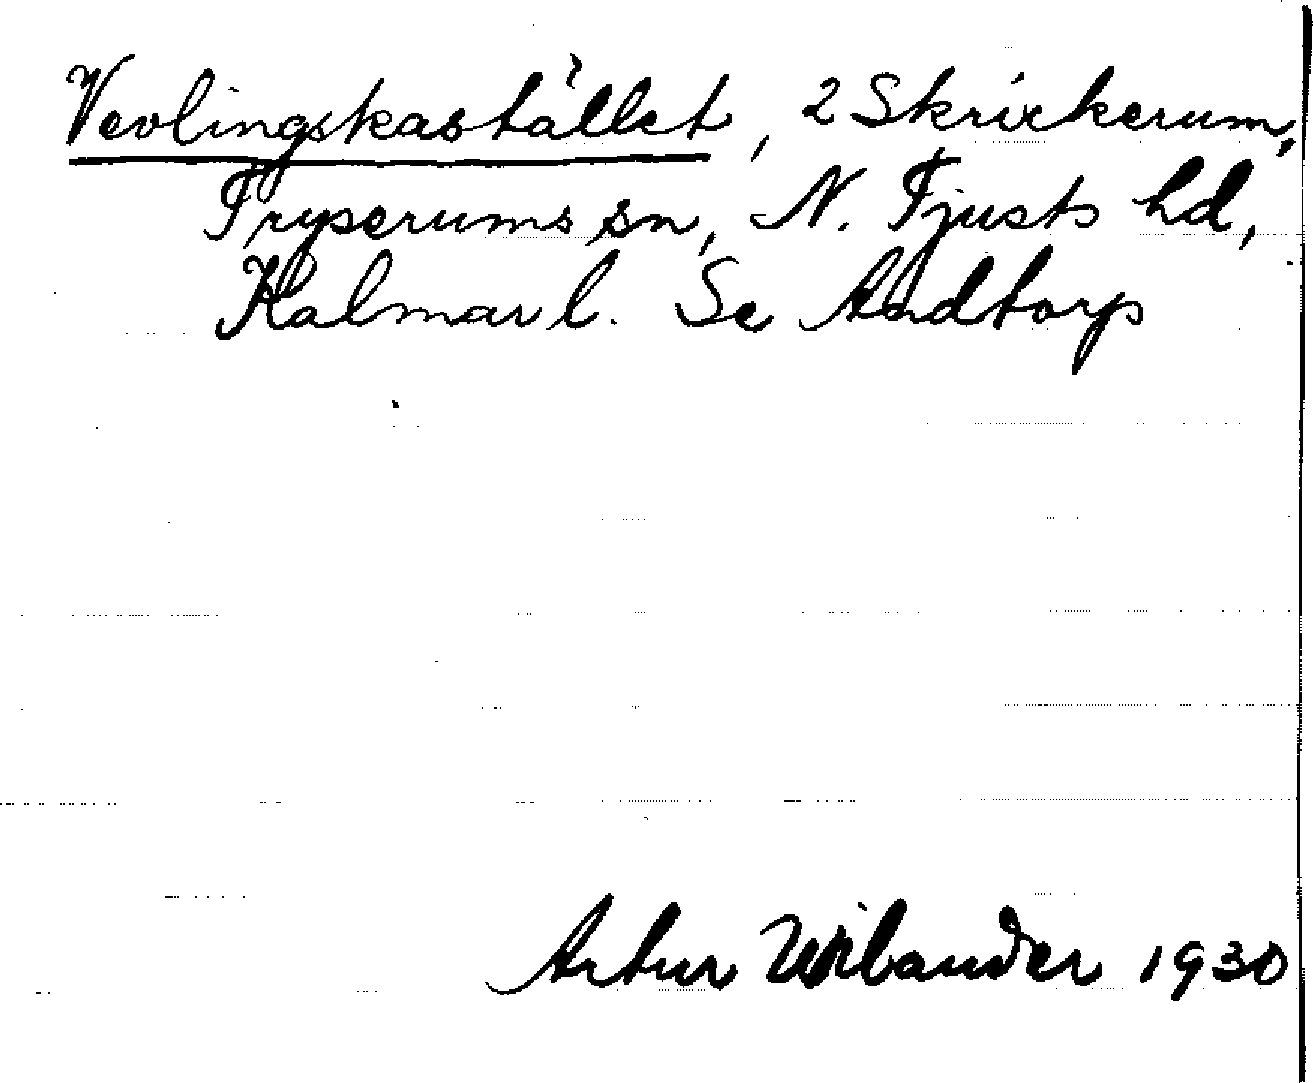 Vevlingskastället, 2 Skrickerum,
Tryserums sn, N. Tjusts hd,
Kalmar l. Se Andtorp
Artur Wilander 1930